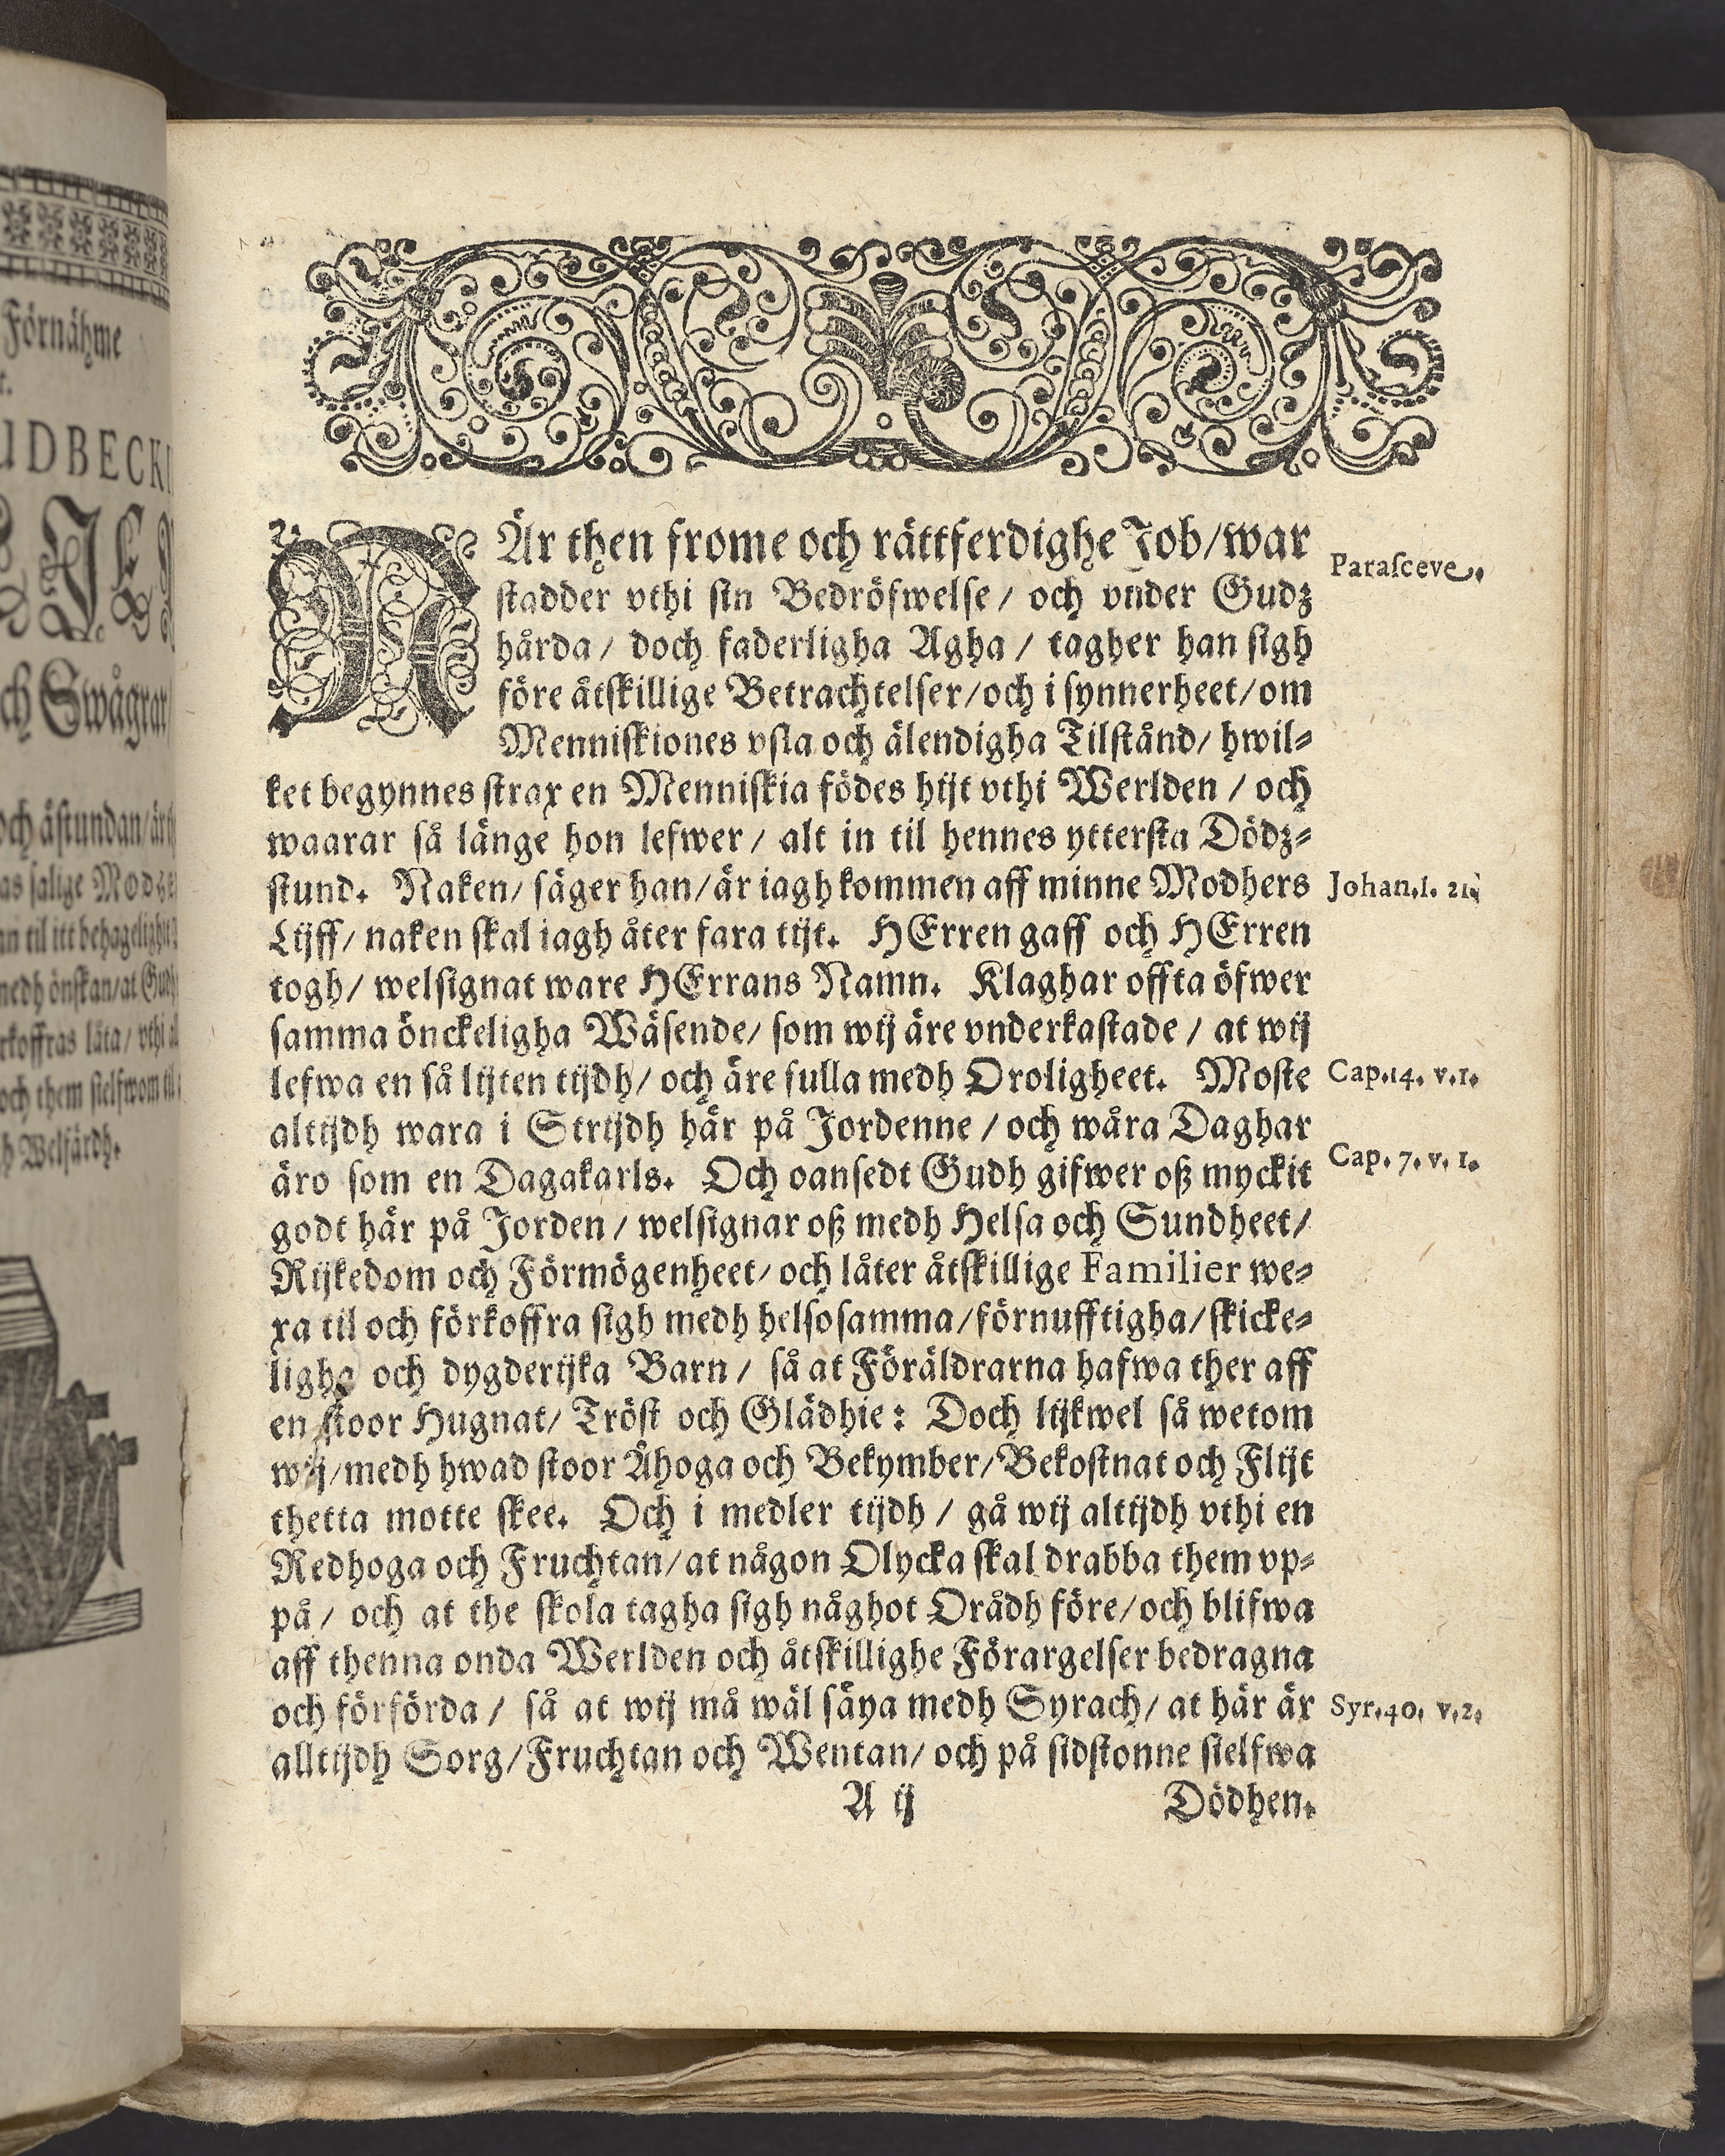 Förnähme
UDBECKI
och Swågrar
och åstundan/är
as salige Modhe
an til itt behageligit
medh önskan/at Gudh
rkoffras låta/ vthi
och them sielfwom til
h Welfärdh.
NÄr then frome och rättferdighe Job/war
Parasceve.
stadder vthi sin Bedröfwelse/ och vnder Gudz
hårda/ doch faderligha Agha/ tagher han sigh
före åtskillige Betrachtelser/och i synnerheet/om
Menniskiones vsla och älendigha Tilstånd/ hwil-
ket begynnes strax en Menniskia födes hijt vthi Werlden/ och
waarar så länge hon lefwer/ alt in til hennes yttersta Dödz-
stund. Naken/ säger han/är iagh kommen aff minne Modhers
Johan.1. 21.
Lijff/ naken skal iagh åter fara tijt. HErren gaff och HErren
togh/ welsignat ware HErrans Namn. Klaghar offta öfwer
samma önckeligha Wäsende/ som wij äre vnderkastade/ at wij
lefwa en så lijten tijdh/ och äre fulla medh Oroligheet. Moste
Cap.14. v.1.
alttijdh wara i Strijdh här på Jordenne/ och wåra Daghar
äro som en Dagakarls. Och oansedt Gudh gifwer oß myckit
Cap. 7. v. 1.
godt här på Jorden/ welsignar oß medh Helsa och Sundheet/
Rijkedom och Förmögenheet/ och låter åtskillige Familier we-
xa til och förkoffra sigh medh helsosamma/förnufftigha/skicke-
ligha och dygderijka Barn/ så at Föräldrarna hafwa ther aff
en stoor Hugnat/ Tröst och Glädhie: Doch lijkwel så wetom
wij/medh hwad stoor Åhoga och Bekymber/Bekostnat och Flijt
thetta motte skee. Och i medler tijdh/ gå wij altijdh vthi en
Redhoga och Fruchtan/at någon Olycka skal drabba them vp-
på/ och at the skola tagha sigh någhot Orådh före/och blifwa
aff thenna onda Werlden och åtskillighe Förargelser bedragna
och förförda/ så at wij må wäl säya medh Syrach/ at här är
Syr.40. v.2.
alltijdh Sorg/Fruchtan och Wentan/ och på sidstonne sielfwa
A ij
Dödhen.